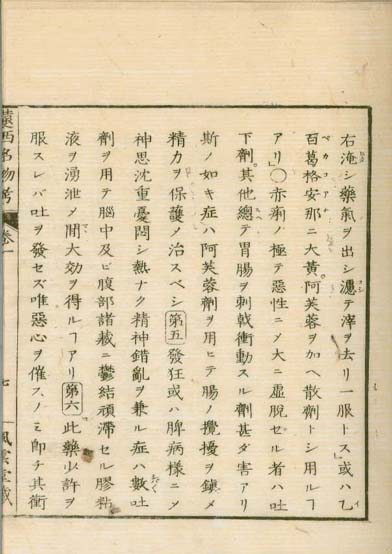 右淹シ藥氣ヲ出シ濾テ滓ヲ去リ一服トス」或ハ乙
百葛格安那ニ大黄。阿芙蓉ヲ加ヘ散劑トシ用ルヿ
アリ」〇赤痢ノ極テ惡性ニ〆大ニ虚脱セル者ハ吐
下劑。其他總テ胃腸ヲ刺戟衝動スル劑甚ダ害アリ
斯ノ如キ症ハ阿芙蓉劑ヲ用ヒテ腸ノ攪擾ヲ鎭メ
精力ヲ保護〆治スベシ 第五 發狂或ハ脾病樣ニ〆
神思沈重憂悶シ熱ナク精神錯亂ヲ兼ル症ハ數吐
劑ヲ用テ腦中及ビ腹部諸藏ニ鬱結頑滯セル膠粘
液ヲ湧泄〆間大効ヲ得ルヿアリ 第六 此藥少許ヲ
服スレバ吐ヲ發セズ唯惡心ヲ催スノミ即チ其衝
名物考
卷一
七